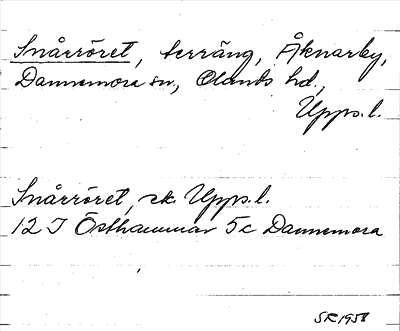 Snårröret, terräng, Åknarby,
Dannemora sn, Olands hd,
Upps. l.
Snårröret, ek. Upps. l.
12 I Östhammar 5c Dannemora
SR 1958